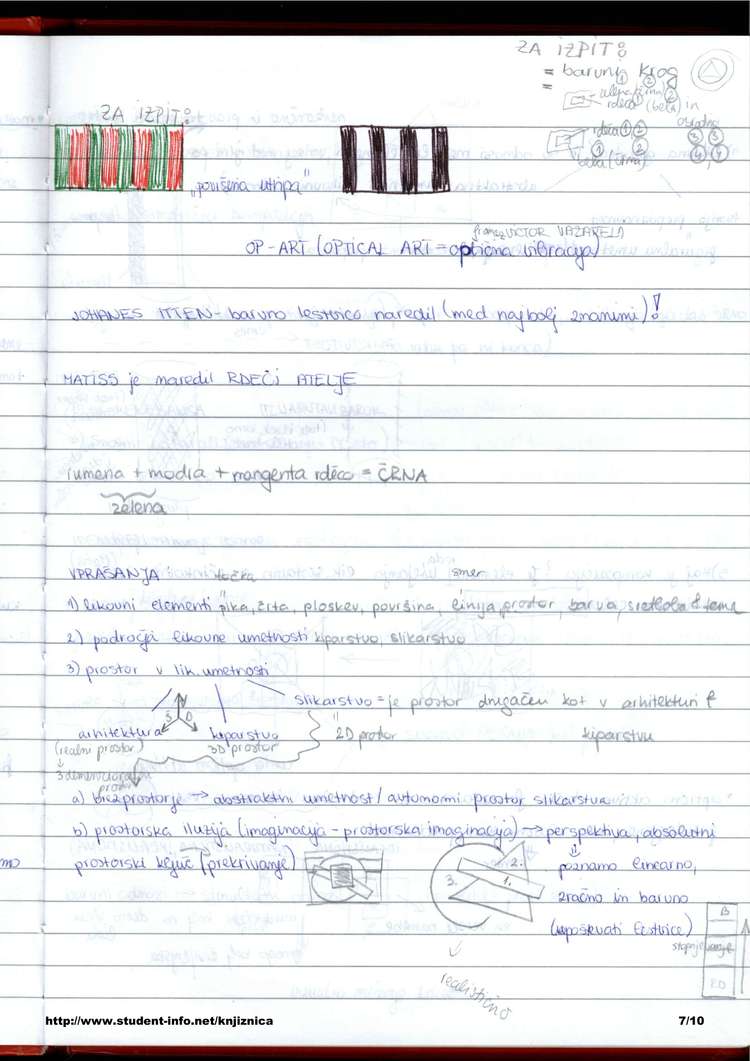 ZA IZPIT:
= barvni krog
=
rdeča (bela) in
ostalne
rdeča
bela (črna)
ZA IZPIT:
"površina utripa"
franc. VICTOR VAZARELI
OP-ART (OPTICAL ART = optična vibracija)
JOHANES ITTEN - barvno lestvico naredil (med najbolj znanimi)!
MATISS je naredil RDEČI ATELJE
rumena + modra + mangenta rdečo = ČRNA
zelena
VPRAŠANJA: točka smer
1) likovni elementi pika, črta, ploskev, površina, linija, prostor, barva, svetloba & tema
2) področja likovne umetnosti kiparstvo, slikarstvo
3) prostor v lik. umetnosti
slikarstvo = je prostor drugačen kot v arhitekturi &
arhitektura kiparstvo 2D prostor kiparstvu
(realni prostor) 3D prostor
3 dimenzionalni
prostor
a) brezprostorje → abstraktna umetnost / avtonomni prostor slikarstva
b) prostorska iluzija (imaginacija - prostorska imaginacija) → perspektiva, absolutni
prostorski ključ (prekrivanje) 3. 2. 1. poznamo linearno,
zračno in barvno
(upoštevati lestvice)
B
stopnjevanje
RD
realistično
http://www.student-info.net/knjiznica
7/10